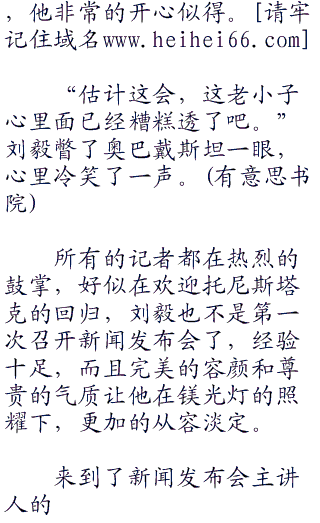 ，他非常的开心似得。[请牢
记住域名www.heihei66.com]
“估计这会，这老小子
心里面已经糟糕透了吧。”
刘毅瞥了奥巴戴斯坦一眼，
心里冷笑了一声。(有意思书
院)
所有的记者都在热烈的
鼓掌，好似在欢迎托尼斯塔
克的回归，刘毅也不是第一
次召开新闻发布会了，经验
十足，而且完美的容颜和尊
贵的气质让他在镁光灯的照
耀下，更加的从容淡定。
来到了新闻发布会主讲
人的